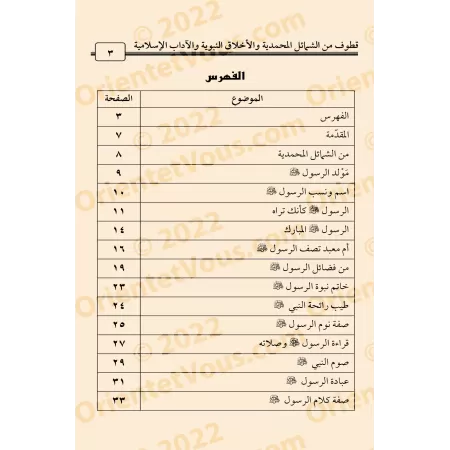 قطوف من الشمائل المحمدية والأخلاق النبوية والآداب الإسلامية ٣
الفهرس
الموضوع الصفحة
الفهرس ٣
المقدّمة ٧
من الشمائل المحمدية ٨
مَوْلد الرسول ﷺ ٩
اسم ونسب الرسول ﷺ ١٠
الرسول ﷺ كأنك تراه ١١
الرسول ﷺ المبارك ١٤
أم معبد تصف الرسول ﷺ ١٦
من فضائل الرسول ﷺ ١٩
خاتم نبوة الرسول ﷺ ٢٣
طيب رائحة النبي ﷺ ٢٤
صفة نوم الرسول ﷺ ٢٥
قراءة الرسول ﷺ وصلاته ٢٧
صوم النبي ﷺ ٢٩
عبادة الرسول ﷺ ٣١
صفة كلام الرسول ﷺ ٣٣
© 2022
OrientetVous.com